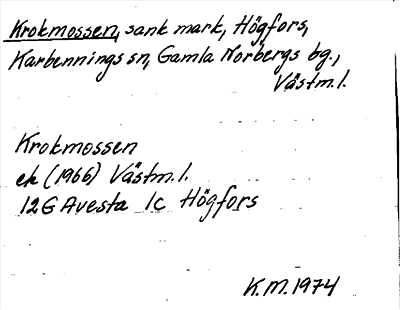 Krokmossen, sank mark, Högfors,
Karbennings sn, Gamla Norbergs bg.,
Västm.l.
Krokmossen
ek (1966) Västm.l.
12G Avesta 1c Högfors
K.M. 1974